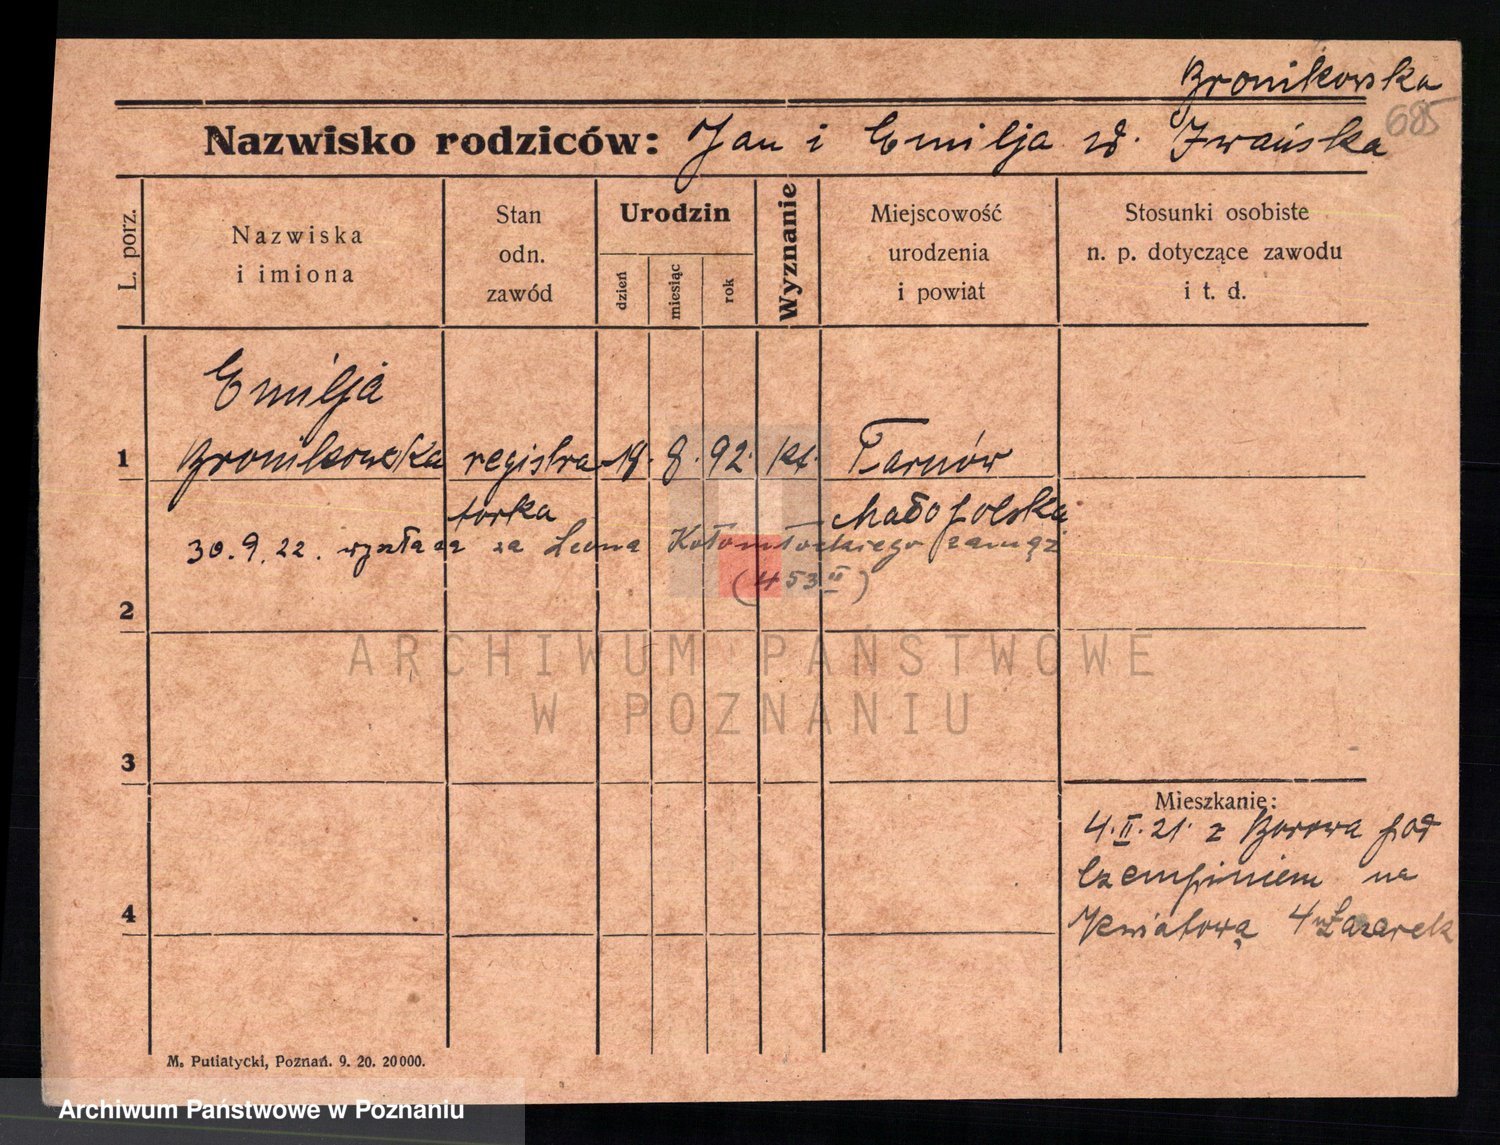 Bronikowska
685
Nazwisko rodziców: Jan i Emilja zd. Iwańska
L. porz.
Nazwiska
i imiona
Stan
odn.
zawód
Urodzin
dzień
miesiąc
rok
Wyznanie
Miejscowość
urodzenia
i powiat
Stosunki osobiste
n. p. dotyczące zawodu
i t. d.
Emilja
1 Bronikowska registra- 18. 8. 92. kt. Tarnów
torka Małopolska
30.9.22. wyszła za Leona zamąż
(453 II)
2
3
4
Mieszkanie:
4.II.21. z Borowa pod
Czempiniem na
Kwiatową 4 Łazarek
M. Putiatycki, Poznań. 9. 20. 20000.
ARCHIWUM PAŃSTWOWE
W POZNANIU
Archiwum Państwowe w Poznaniu